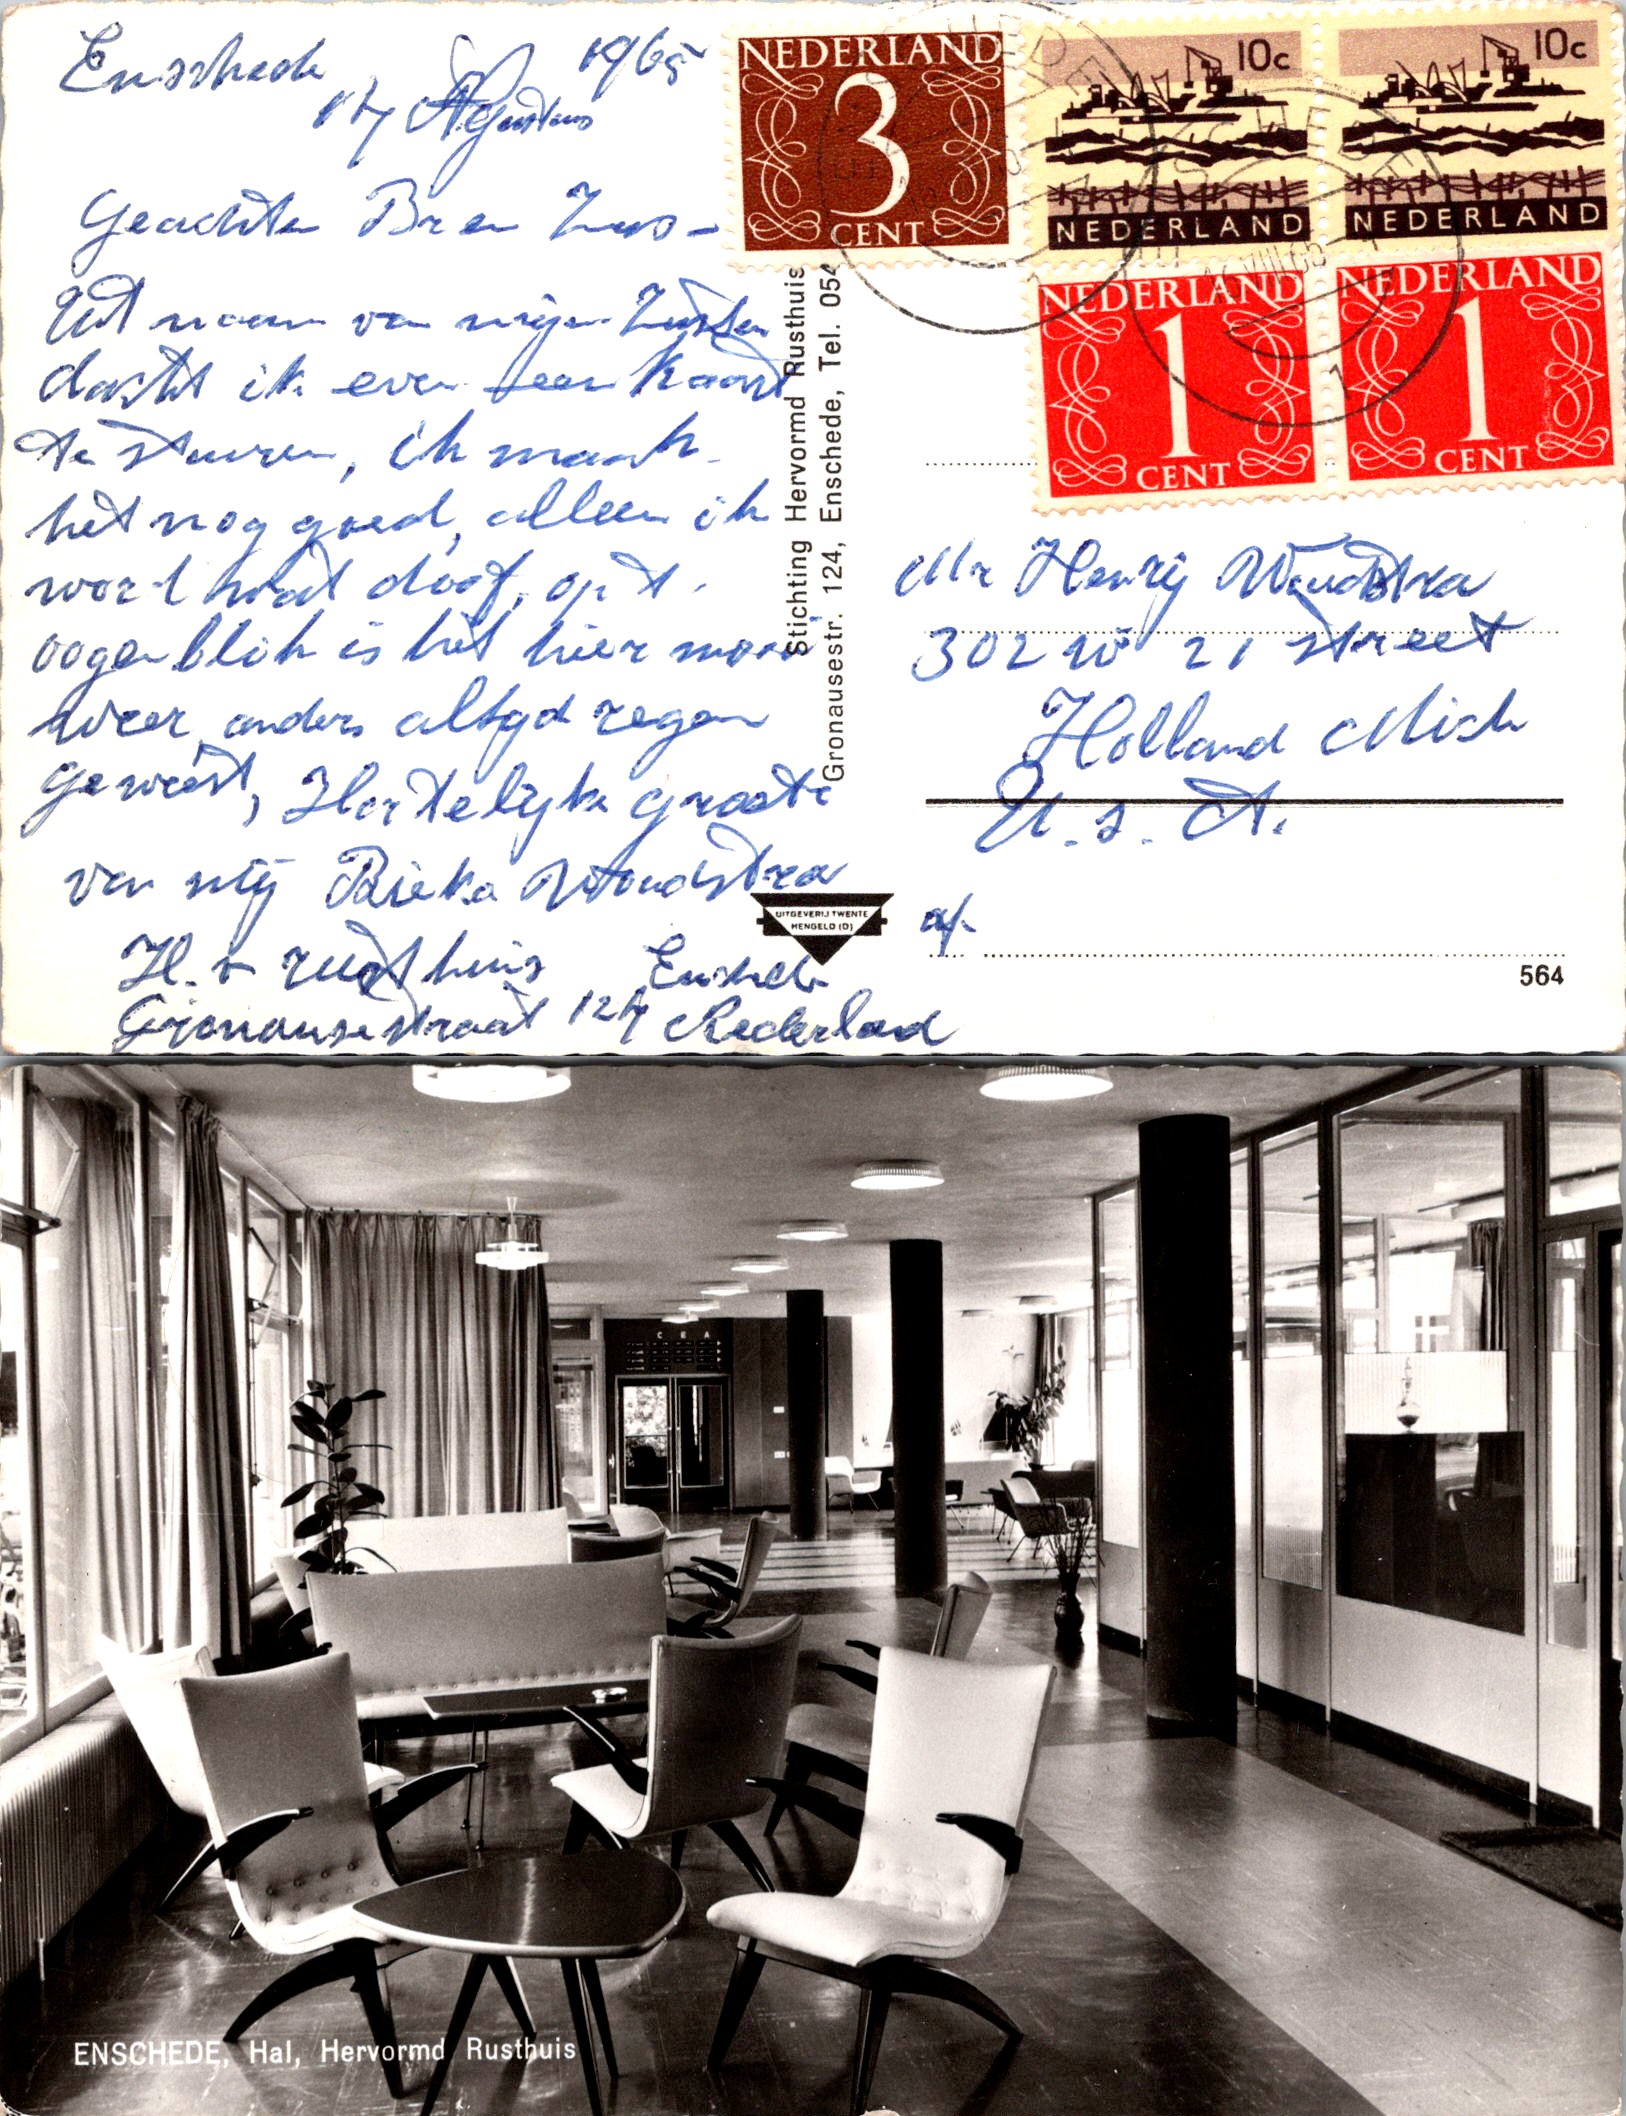 Enschede, 1965
14 Agustus
Geachten Br en Zus -
Uit naam van mijn Zuster
dacht ik even een Kaart
te sturen, ik maak
het nog goed, alleen ik
word wat doof, op 't
oogenblik is het hier mooi
weer anders altyd regen
geweest, Hertelijke groete
van mij Rieka Woudstra
H. v rusthuis Enschede
Gronausestraat 124 Nederland
Stichting Hervormd Rusthuis
Gronausestr. 124, Enschede, Tel. 054
NEDERLAND
3
CENT
10c
NEDERLAND
10c
NEDERLAND
NEDERLAND
1
CENT
NEDERLAND
1
CENT
Mr Henry Woudstra
302 W 21 street
Holland Mich
U.S.A.
UITGEVERIJ TWENTE
HENGELO (O)
a/-
564
C E A
ENSCHEDE, Hal, Hervormd Rusthuis